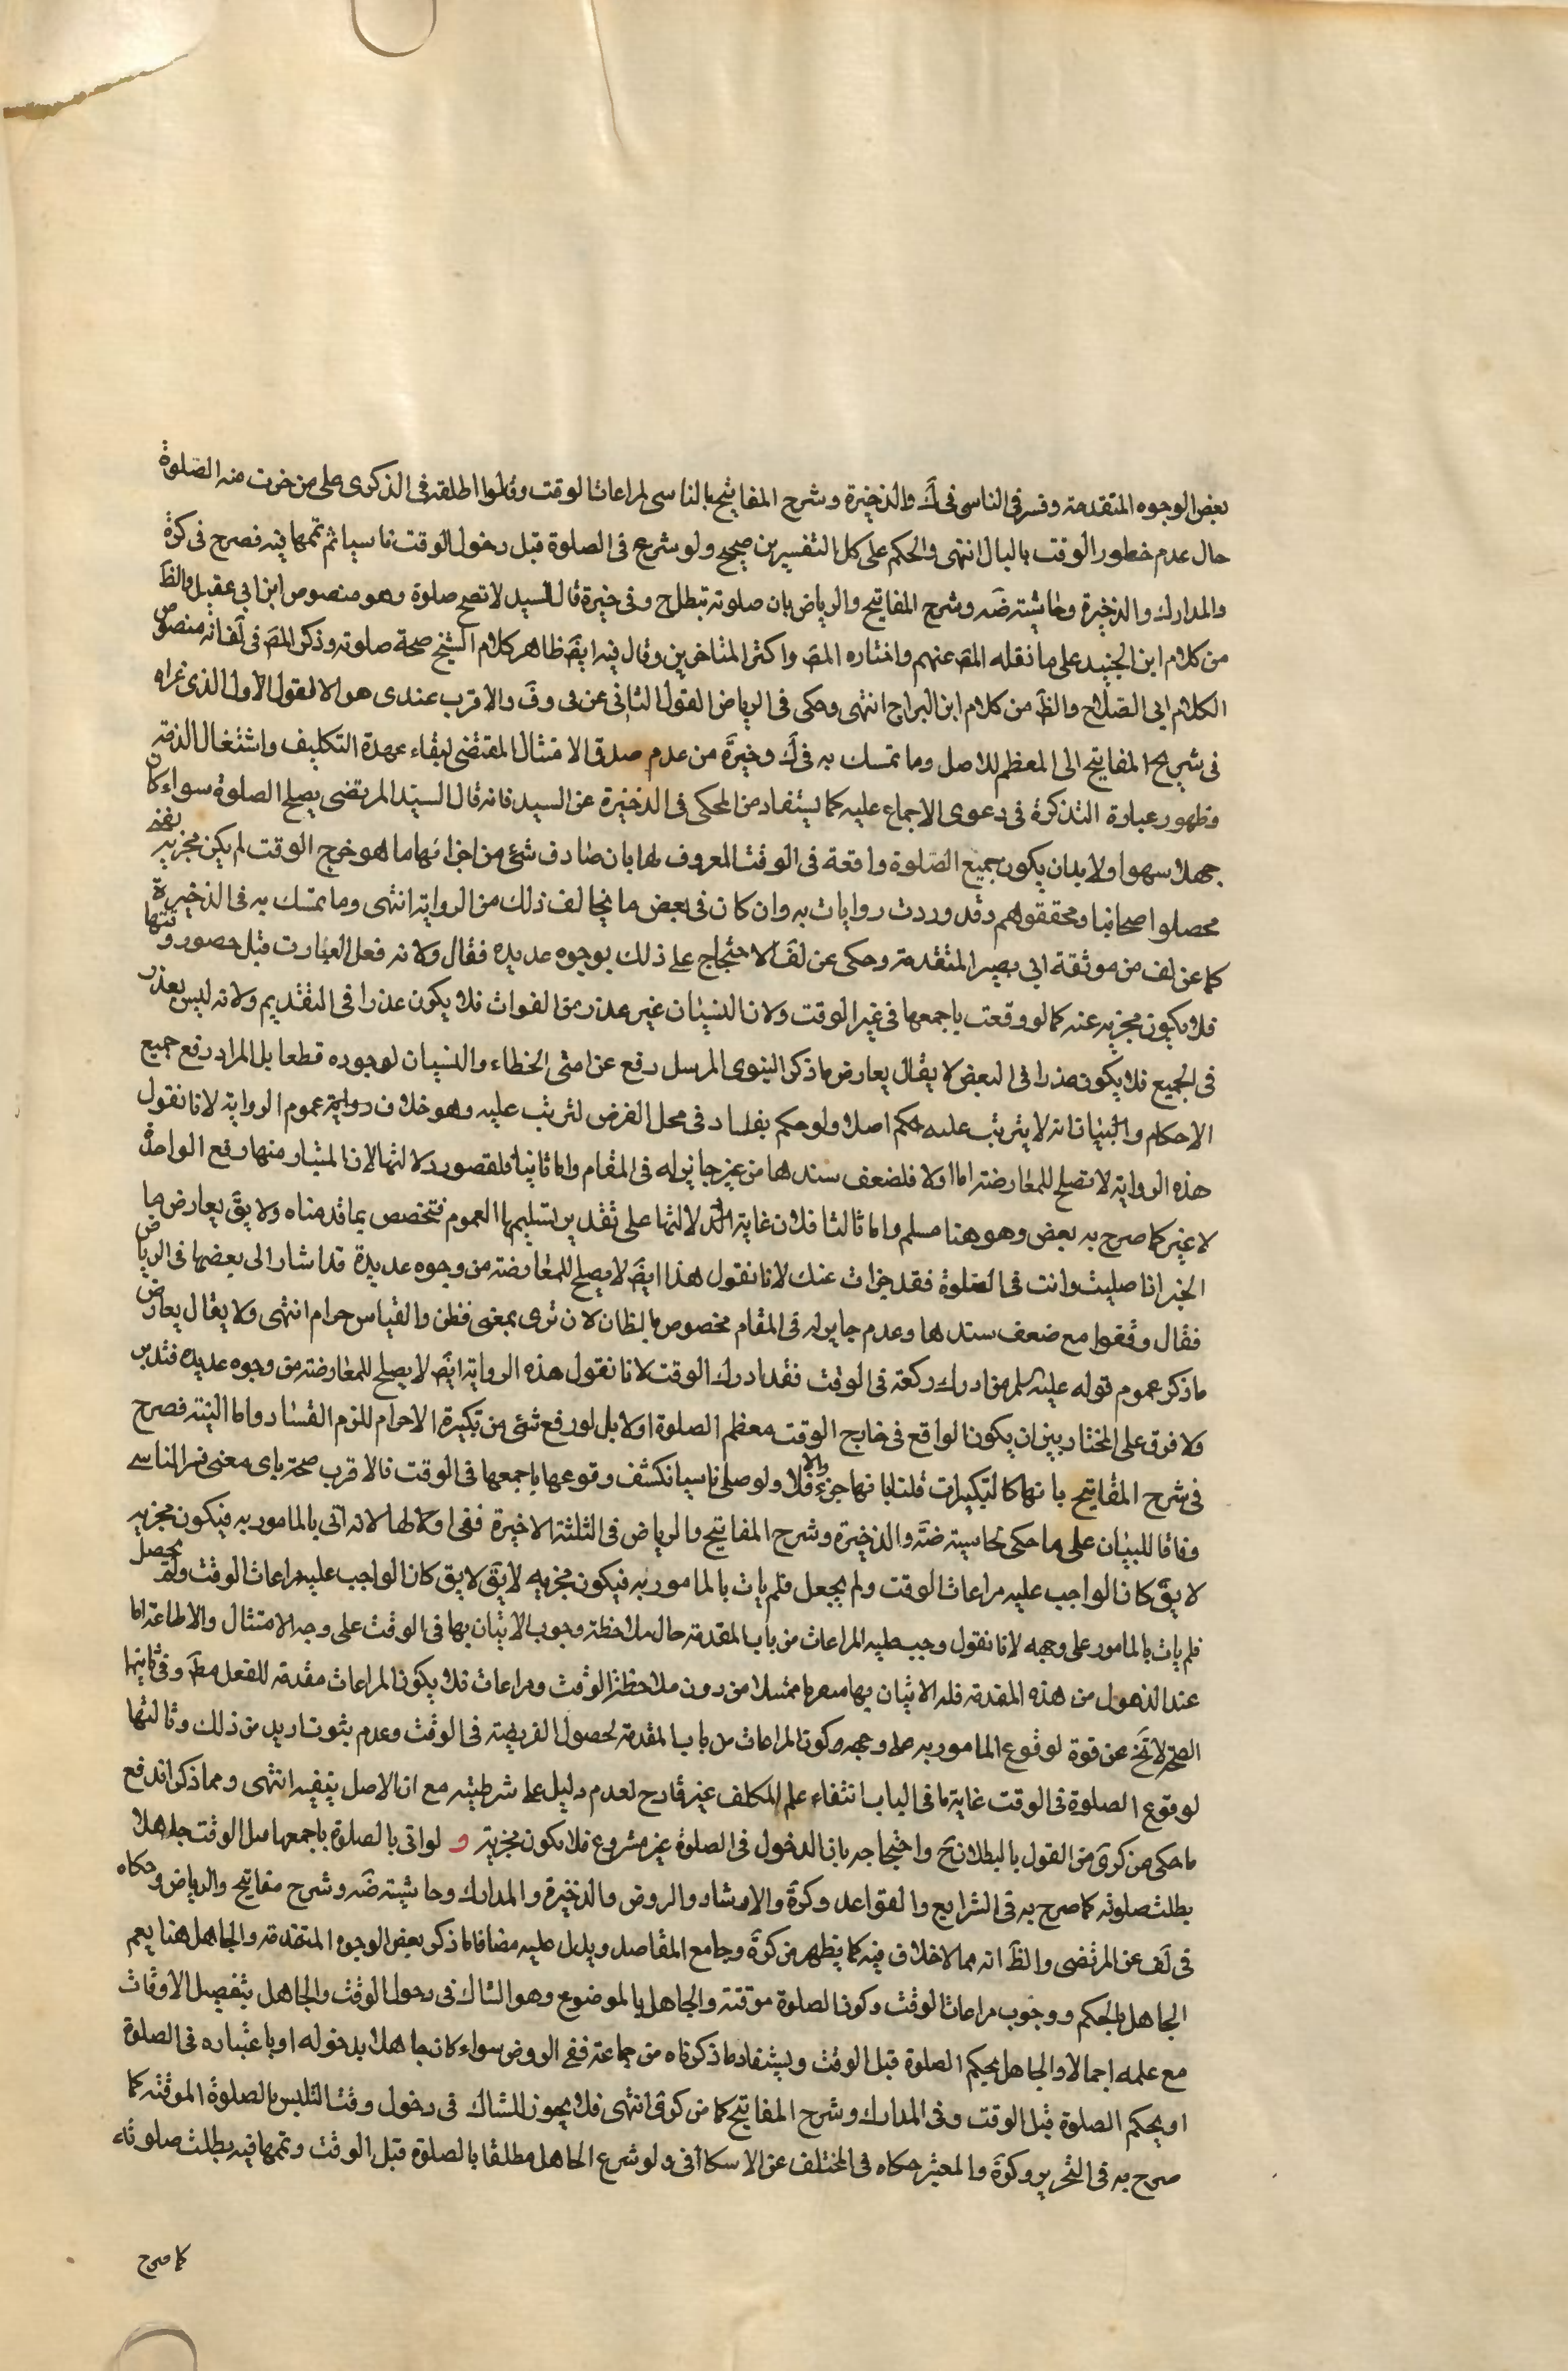 بعض الوجوه المتقدمة وفسر فى الناسى فى ك والذخيرة وشرح المفاتيح بالناسى لمراعات الوقت وقالوا اطلقه فى الذكرى على من خرت منه الصلوة
حال عدم خطور الوقت بالبال انتهى والحكم على كل التفسيرين صحيح ولو شرع فى الصلوة قبل دخول الوقت ناسيا ثم تمها فيه فصرح فى كرة
والمدارك والذخيرة وحاشيته ضه وشرح المفاتيح والرياض بان صلوته تبطل ح وفى خيرة قال السيد لا تصح صلوة وهو منصوص ابن ابى عقيل والظ
من كلام ابن الجنيد على ما نقله المص عنهم واختاره المص واكثر المتاخرين وقال فيه ايضً ظاهر كلام الشيخ صحة صلوته وذكر المص فى لف انه منصوص
الكلام ابى الصلاح والظ من كلام ابن البراج انتهى وحكى فى الرياض القول الثانى عن فى وف والاقرب عندى هو الاالقول الاول الذى عزاه
فى شرح المفاتيح الى المعظم للاصل وما تمسك به فى ك وخيرة من عدم صدق الامتثال المقتضى لبقاء عهدة التكليف واشتغال الذمة
وظهور عبارة التذكرة فى دعوى الاجماع عليه كما يستفاد من المحكى فى الذخيرة عن السيد فانه قال السيد المرتضى يصلح الصلوة سواء كان
جهلا سهوا ولا بد ان يكون جميع الصلوة واقعة فى الوقت المعروف لها بان صادف شئ من اجزائها ما هو خرج الوقت لم يكن مجزيه
محصلوا اصحابنا ومحققوهم وقد وردت روايات به وان كان فى بعض ما يخالف ذلك من الرواية انتهى وما تمسك به فى الذخيرة
كما عن لف من موثقة ابى بصير المتقدمة وحكى عن لف الاحتجاج على ذلك بوجوه عديده فقال ولانه فعل العبارت قبل حصور وقتها
فلا يكون مجزيه عنه كما لو وقعت باجمعها فى غير الوقت ولان النسيان غير عذر من الفوات فلا يكون عذرا فى التقديم ولانه ليس بعذر
فى الجميع فلا يكون عذرا فى البعض لا يقال يعارض ما ذكر النبوى المرسل رفع عن امتى الخطاء والنسيان لوجوده قطعا بل المراد رفع جميع
الاحكام والبيان انه لا يترتب عليه حكم اصلا ولو حكم بفساد فى محل الفرض لترتب عليه وهو خلاف رواية عموم الرواية لانا نقول
هذه الرواية لا تصلح للمعارضة اما اولا فلضعف سندها من غير جابر له فى المقام واما ثانيا فلقصور دلالتها لان المتبار منها رفع المواخذة
لا غير كما صرح به بعض وهو هنا مسلم واما ثالثا فلان غاية الدلالتها على تقدير تسليمها العموم فتخصص بما قدمناه ولا يقَ يعارض ما
الخبر اذا صليت وانت فى الصلوة فقد جزات عنك لانا نقول هذا ايضً لا يصلح للمعارضة من وجوه عديدة قد اشار الى بعضها فى الرياض
فقال وقفوا مع ضعف سندها وعدم جابر له فى المقام مخصوص بالظان لان ترى بمعنى فظن والقياس حرام انتهى ولا يقال يعارض
ما ذكر عموم قوله عليه سلم من ادرك ركعة فى الوقت فقد ادرك الوقت لانا نقول هذه الرواية ايضً لا يصلح للمعارضة من وجوه عديده فتدبر
ولا فرق على المختار بين ان يكون الواقع فى خارج الوقت معظم الصلوة اولا بل لو رفع شئ من تكبيرة الاحرام للزم الفساد واما النية فصرح
فى شرح المفاتيح بانها كالتكبيرات قلنا بانها جزء والا فلا ولو صلى ناسيا نكشف وقوعها باجمعها فى الوقت فالاقرب صحته باى معنى فسر الناسى
وفاقا للبيان على ما حكى حاسيته ضة والذخيرة وشرح المفاتيح والرياض فى الثلثة الاخيرة ففى اولها لانه اتى بالمامور به فيكون مجزيه
لا يقَ كان الواجب عليه مراعات الوقت ولم يجعل فلم يات بالمامور به فيكون مجزيه لا يقَ لا يق كان الواجب عليه مراعات الوقت ولم يحصل
فلم يات بالمامور على وجهه لانا نقول وجب عليه المراعات من باب المقدمة حال ملاحظة وجوب الاتيان بها فى الوقت على وجه الامتثال والاطاعة اما
عند الذهول من هذه المقدمة فله الاتيان بها من دون ملاحظة الوقت ومراعات فلا يكون المراعات مقدمة للفعل مط وفى ثانيها
الصحة لا تخ عن قوة لوقوع المامور به على وجهه وكون المراعات من باب المقدمة لحصول الفريضة فى الوقت وعدم ثبوت ازيد من ذلك وثالثها
لوقوع الصلوة فى الوقت غاية ما فى الباب انتفاء علم المكلف غير قادح لعدم دليل على شرطيته مع ان الاصل ينفيه انتهى ومما ذكر اندفع
ما حكى من كرى من القول بالبطلان ح واحتجاجه بان الدخول فى الصلوة غير مشروع فلا يكون مجزية و لو اتى بالصلوة باجمعها قبل الوقت جاهلا
بطلت صلوته كما صرح به فى الشرايع والقواعد وكرة والارشاد والروض والذخيرة والمدارك وحاشيته ضه وشرح مفاتيح والرياض وحكاه
فى لف عن المرتضى والظ انه مما لا خلاف فيه كما يظهر من كرة وجامع المقاصد ويدل عليه مضافا لما ذكر بعض الوجوه المتقدمة والجاهل هنا يعم
الجاهل بالحكم ووجوب مراعات الوقت وكون الصلوة موقتة والجاهل بالموضوع وهو الشاك فى دخول الوقت والجاهل بتفصيل الاوقات
مع علمه اجمالا والجاهل بحكم الصلوة قبل الوقت ويستفاد ما ذكرناه من جماعة ففى الروض سواء كان جاهلا بدخوله او باعتباره فى الصلوة
او بحكم الصلوة قبل الوقت وفى المدارك وشرح المفاتيح كما من كرى انتهى فلا يجوز للشاك فى دخول وقت التلبس بالصلوة الموقتة كما
صرح به فى التحرير وكرة والمعتبر حكاه فى المختلف عن الاسكافى ولو شرع الجاهل مطلقا بالصلوة قبل الوقت وتمها فيه بطلت صلوته
كما صرح